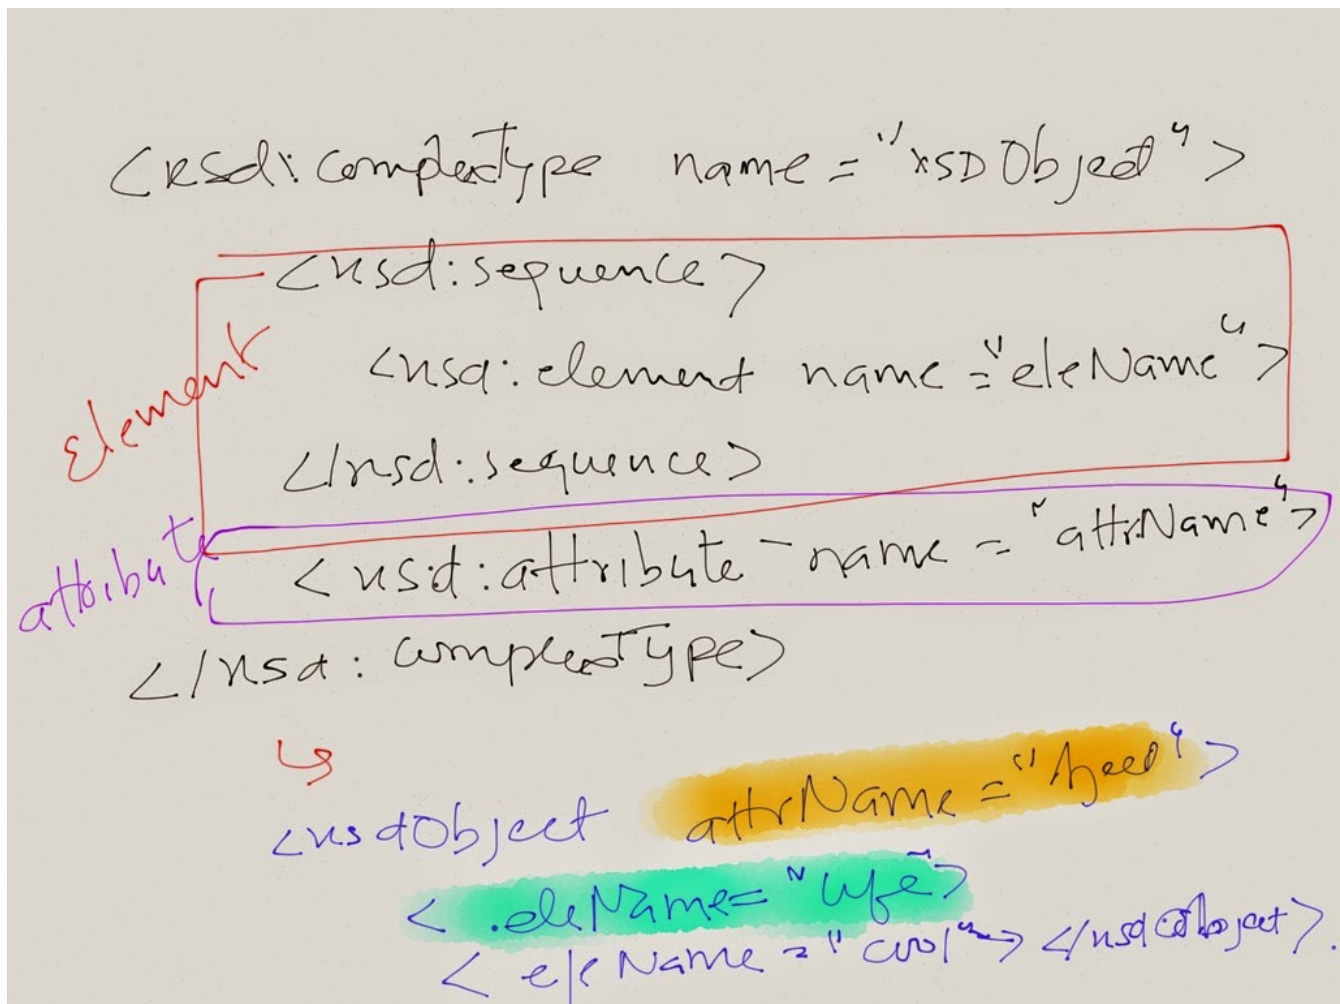 <xsd:complexType name="XSDObject">
<xsd:sequence>
Element
<xsd:element name="eleName">
</xsd:sequence>
attribute
<xsd:attribute name="attrName">
</xsd:complexType>
<xsdObject attrName=">
<eleName=">
<eleName="cool"> </xsdObject>.